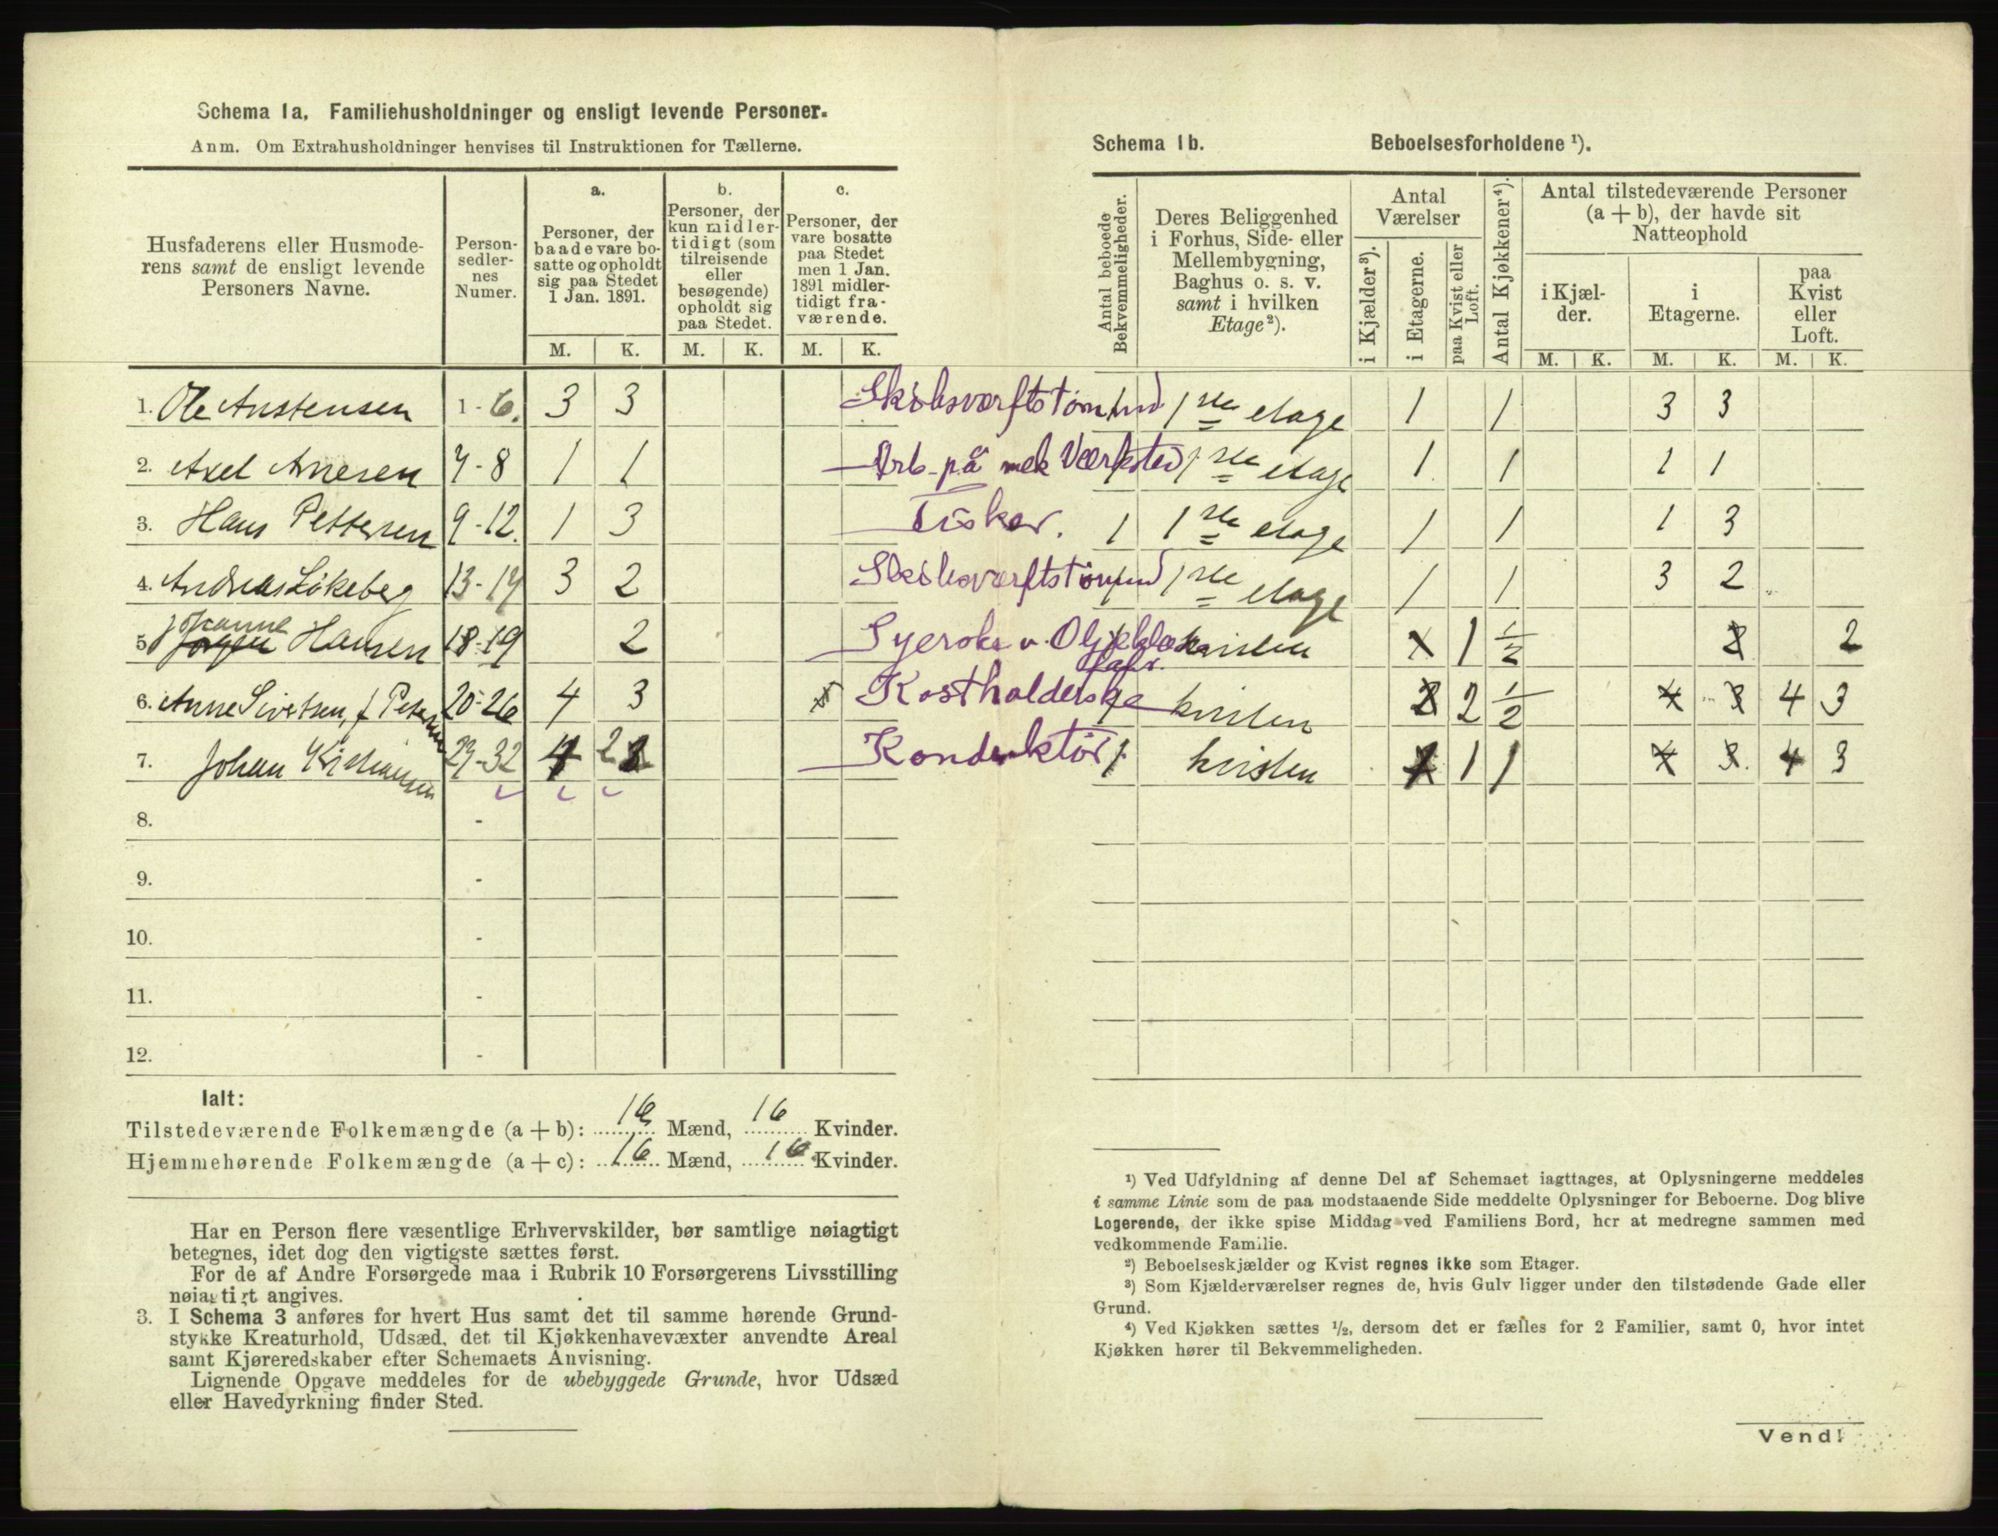 Schema 1a, Familiehusholdninger og ensligt levende Personer.
Anm. Om Extrahusholdninger henvises til Instruktionen for Tællerne.
Husfaderens eller Husmode-
rens samt de ensligt levende
Personers Navne.
Person-
sedler-
nes
Numer.
a.
Personer, der
baade vare bo-
satte og opholdt
sig paa Stedet
1 Jan. 1891.
b.
Personer, der
kun midler-
tidigt (som
tilreisende
eller
besøgende)
opholdt sig
paa Stedet.
c.
Personer, der
vare bosatte
paa Stedet
men 1 Jan.
1891 midler-
tidigt fra-
værende.
M. K. M. K. M. K.
1. Ole Anstensen 1-6. 3 3
2. Axel Anesen 7-8 1 1
3. Hans Pettersen 9-12. 1 3
4. Andreas Løkeberg 13-17 3 2
5. Johanne Hansen 18-19 2
6. Anne Sivertsen, f Petersen 20-26 4 3
7. Johan Kristiansen 27-32 4 2
8. -
9. -
10. -
11. -
12. -
Ialt:
Tilstedeværende Folkemængde (a + b): 16 Mænd, 16 Kvinder.
Hjemmehørende Folkemængde (a + c): 16 Mænd, 16 Kvinder.
Har en Person flere væsentlige Erhvervskilder, bør samtlige nøiagtigt
betegnes, idet dog den vigtigste sættes først.
For de af Andre Forsørgede maa i Rubrik 10 Forsørgerens Livsstilling
nøiagtigt angives.
3. I Schema 3 anføres for hvert Hus samt det til samme hørende Grund-
stykke Kreaturhold, Udsæd, det til Kjøkkenhavevæxter anvendte Areal
samt Kjøreredskaber efter Schemaets Anvisning.
Lignende Opgave meddeles for de ubebyggede Grunde, hvor Udsæd
eller Havedyrkning finder Sted.
Schema 1b. Beboelsesforholdene ¹).
Antal beboede
Bekvemmeligheder.
Deres Beliggenhed
i Forhus, Side- eller
Mellembygning,
Baghus o. s. v.
samt i hvilken
Etage²).
Antal
Værelser
i Kjælder³).
i Etagerne.
paa Kvist eller
Loft.
Antal Kjøkkener⁴).
Antal tilstedeværende Personer
(a + b), der havde sit
Natteophold
i Kjæl-
der.
i
Etagerne.
paa
Kvist
eller
Loft.
M. K. M. K. M. K.
Skibsværftstømmd 1 1ste etage 1 1 3 3
Arb. på mek Værksted 1 1ste etage 1 1 1 1
Fisker. 1 1 1ste etage 1 1 1 3
Skibsværftstømmd 1 1ste etage 1 1 3 2
Syerske v. Oljeklæ fabr. 1 kvisten 1 1 1/2 2 2
Kostholderske 1 kvisten 2 2 1/2 4 3 4 3
Konduktør 1 kvisten 1 1 1 4 3 4 3
¹) Ved Udfyldning af denne Del af Schemaet iagttages, at Oplysningerne meddeles
i samme Linie som de paa modstaaende Side meddelte Oplysninger for Beboerne. Dog blive
Logerende, der ikke spise Middag ved Familiens Bord, her at medregne sammen med
vedkommende Familie.
²) Beboelseskjælder og Kvist regnes ikke som Etager.
³) Som Kjælderværelser regnes de, hvis Gulv ligger under den tilstødende Gade eller
Grund.
⁴) Ved Kjøkken sættes ½, dersom det er fælles for 2 Familier, samt 0, hvor intet
Kjøkken hører til Bekvemmeligheden.
Vend!